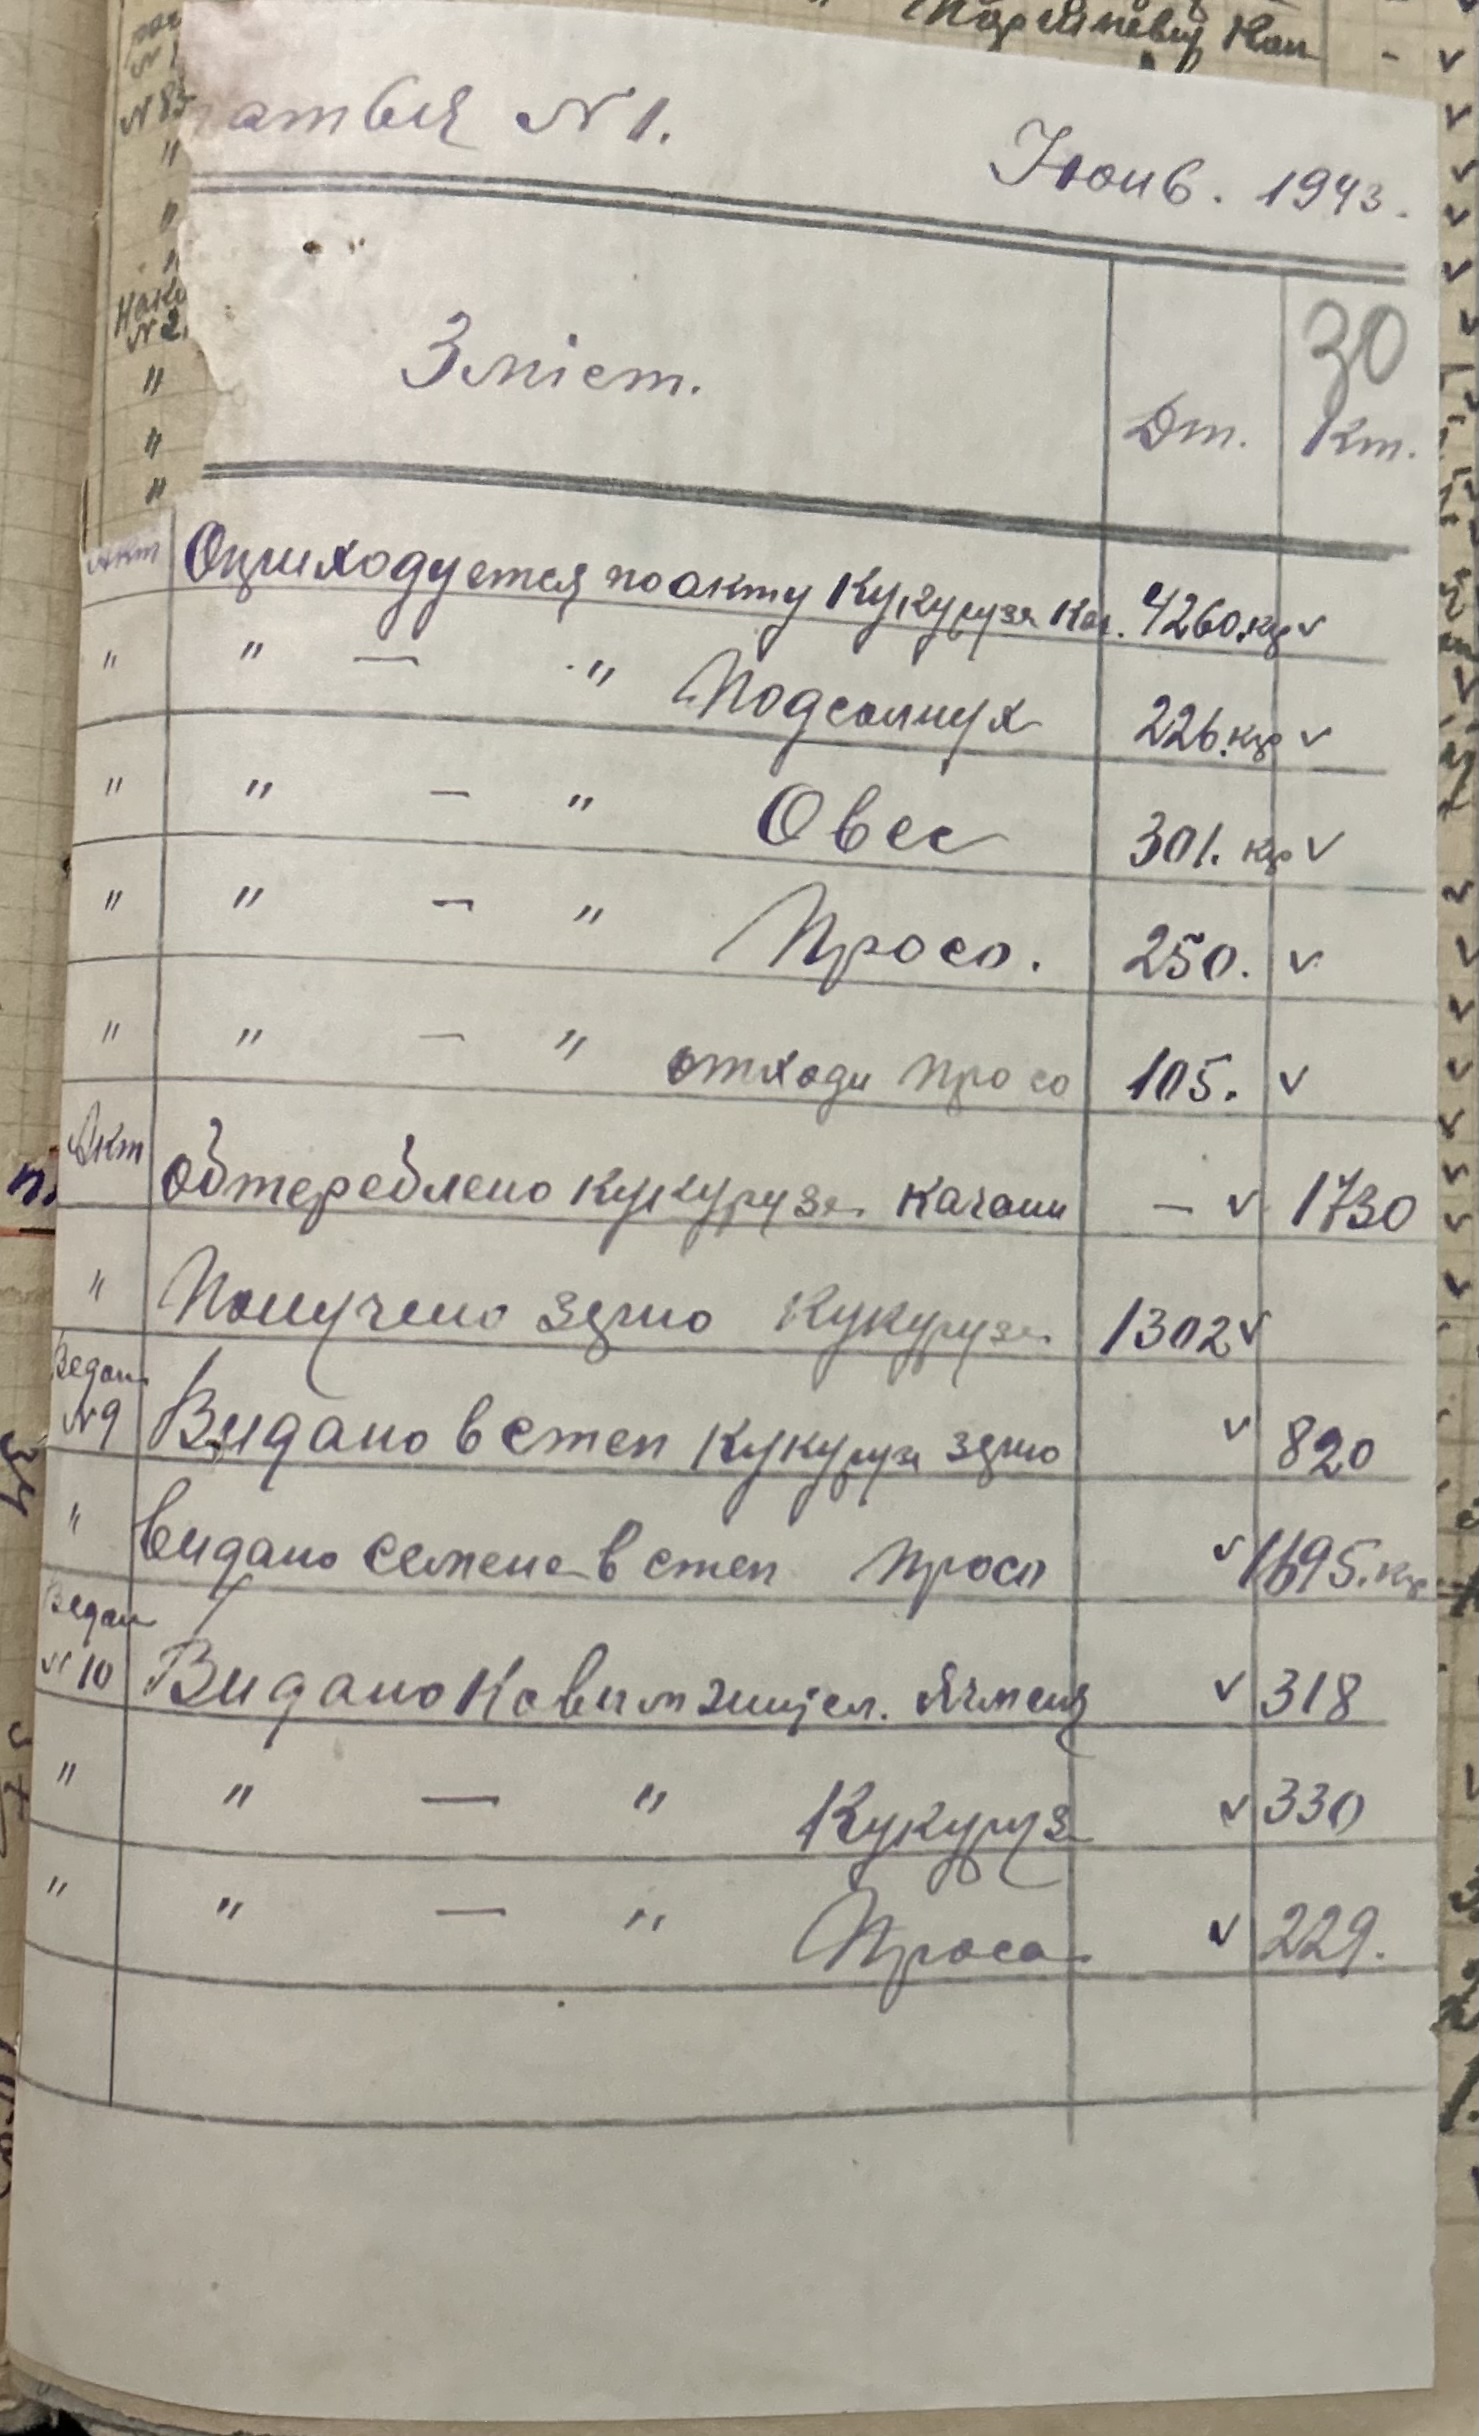 Партiйневiч Кап -
N 85
"
"
"
N 2
"
"
"
N 1. Июнь. 1943.
30
Зміст. Дт. Кт.
Акт Оприходуется по акту Кукурузя Кач. 4260.кг ✓
" " — " Подсолнух 226.кг ✓
" " — " Овес 301. кг ✓
" " — " Просо. 250. ✓
" " — " отходи просо 105. ✓
Акт обтереблено кукурузя качани — ✓ 1730
" Получено зерно Кукурузя 1302 ✓
Ведом N 9 Видано в степ Кукурузя зерно ✓ 820
" видано семена в степ просо ✓ 1695.кг
Ведом N 10 Видано Ячменя ✓ 318
" " — " Кукурузя ✓ 330
" " — " Проса ✓ 229.